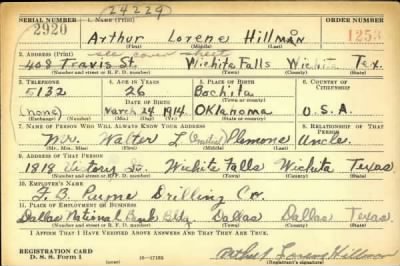 24229
SERIAL NUMBER 1. NAME (Print) ORDER NUMBER
2920 Arthur Lorene Hillman 1253
(First) (Middle) (Last)
2. ADDRESS (Print) see cover sheet
408 Travis St. Wichita Falls Wichita Tex.
(Number and street or R. F. D. number) (Town) (County) (State)
3. TELEPHONE 4. AGE IN YEARS 5. PLACE OF BIRTH 6. COUNTRY OF CITIZENSHIP
5132 26 Bochita
DATE OF BIRTH (Town or county)
(none) March 24 1914 Oklahoma U.S.A.
(Exchange) (Number) (Mo.) (Day) (Yr.) (State or country)
7. NAME OF PERSON WHO WILL ALWAYS KNOW YOUR ADDRESS 8. RELATIONSHIP OF THAT PERSON
Mr. Walter L (initial) Plemons Uncle
(Mr., Mrs., Miss) (First) (Middle) (Last)
9. ADDRESS OF THAT PERSON
1818 Wichita Falls Wichita Texas
(Number and street or R. F. D. number) (Town) (County) (State)
10. EMPLOYER'S NAME
Drilling Co.
11. PLACE OF EMPLOYMENT OR BUSINESS
Dallas National Bank Bldg. Dallas Dallas Texas
(Number and street or R. F. D. number) (Town) (County) (State)
I AFFIRM THAT I HAVE VERIFIED ABOVE ANSWERS AND THAT THEY ARE TRUE.
REGISTRATION CARD
D. S. S. Form 1 (over) 16—17105 Arthur Lorene Hillman
(Registrant's signature)